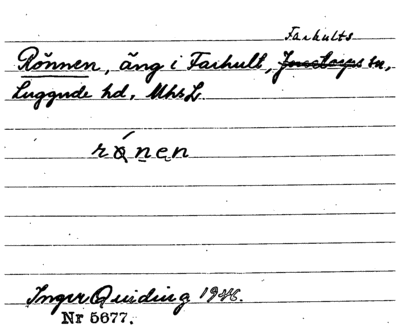 Farhults
Rönnen, äng i Farhult, Jonstorps sn,
Luggude hd, Mhs L.
rǿnen
Inger Quiding 1946.
Nr 5677.